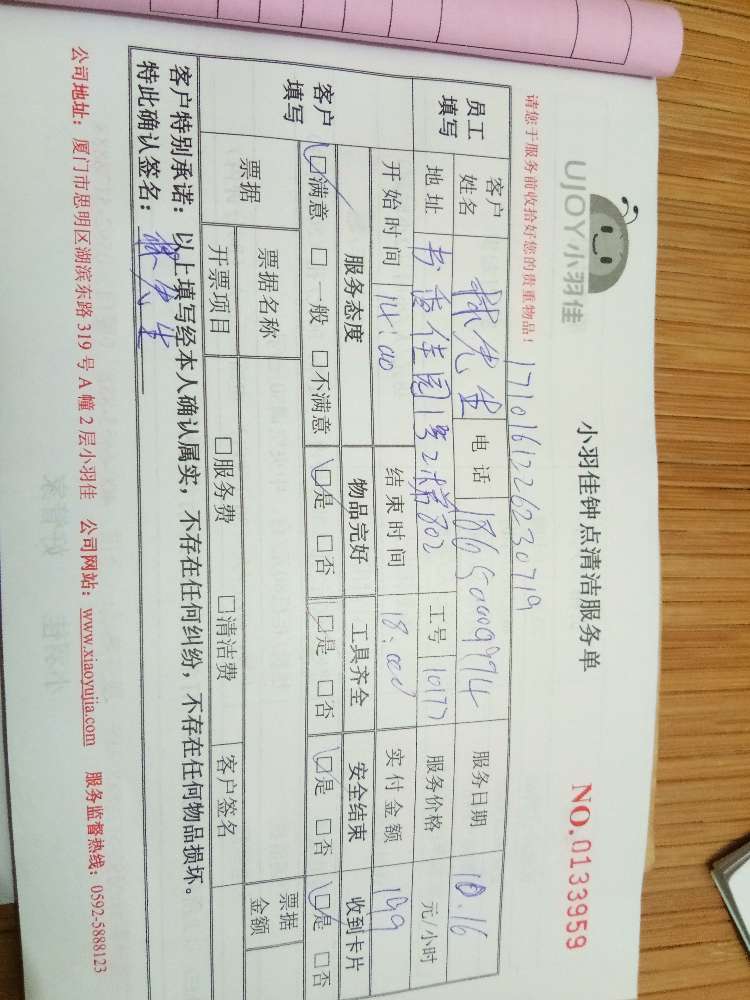 UJOY小羽佳
小羽佳钟点清洁服务单
NO.0133959
请您于服务前收拾好您的贵重物品！
1710161226230719
员工填写
客户姓名 林先生 电话 服务日期 10.16
地址 书香佳园1号2梯802 工号 10177 服务价格 元/小时
开始时间 14:00 结束时间 实付金额 199
客户填写
服务态度 物品完好 工具齐全 安全结束 收到卡片
□满意 □一般 □不满意 □是 □否 □是 □否 □是 □否 □是 □否
票据 票据名称 票据金额
开票项目 □服务费 □清洁费 客户签名
客户特别承诺：以上填写经本人确认属实，不存在任何纠纷，不存在任何物品损坏。
特此确认签名：林先生
公司地址：厦门市思明区湖滨东路 319 号 A 幢 2 层小羽佳 公司网站：www.xiaoyujia.com 服务监督热线：0592-5888123